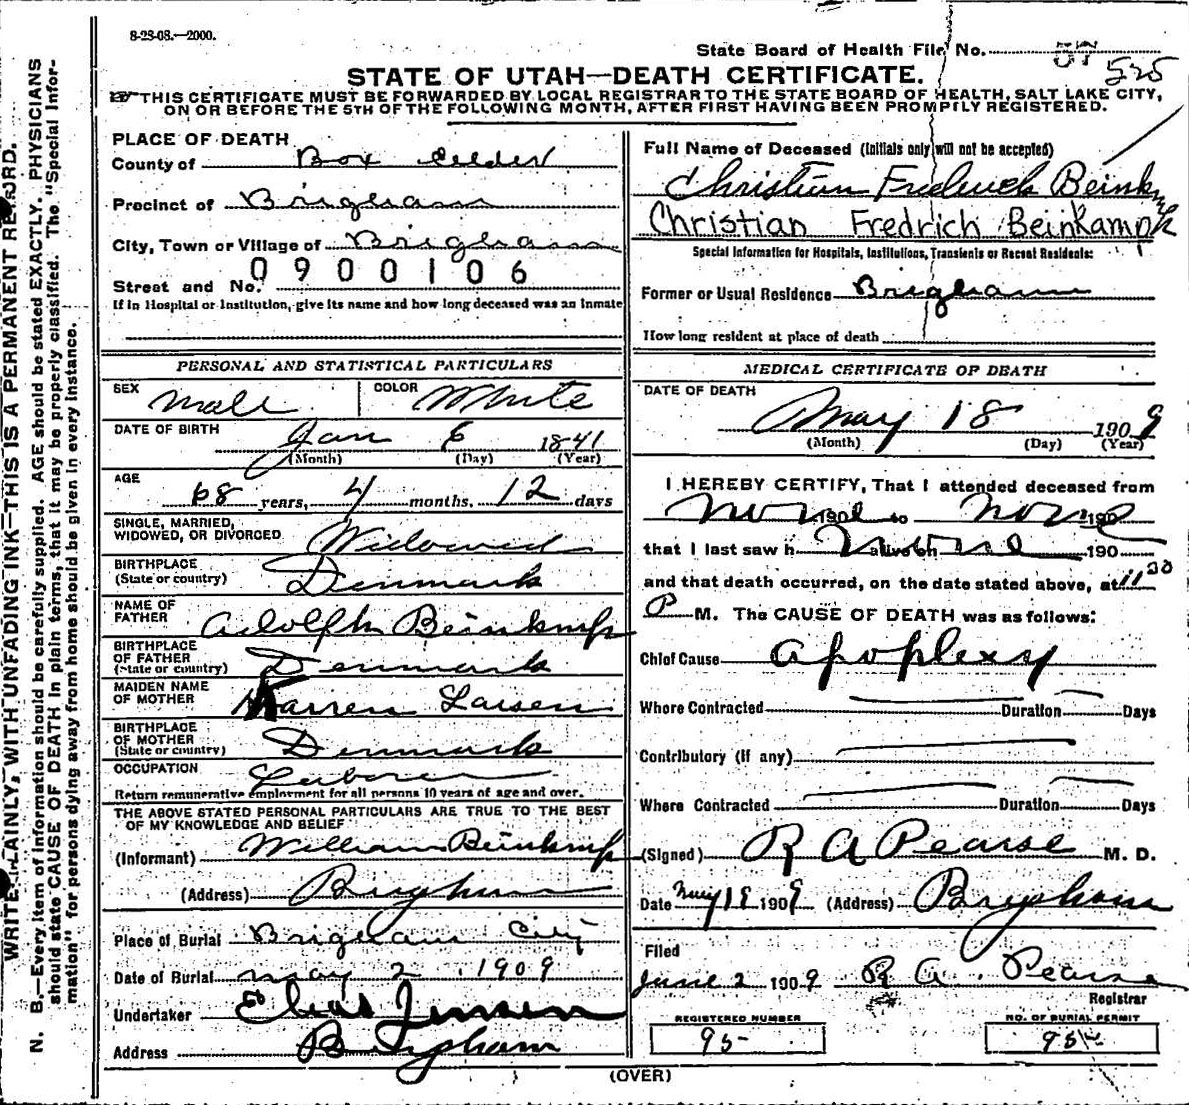 8-28-08.—2000.
State Board of Health File No. 525
STATE OF UTAH—DEATH CERTIFICATE.
THIS CERTIFICATE MUST BE FORWARDED BY LOCAL REGISTRAR TO THE STATE BOARD OF HEALTH, SALT LAKE CITY,
ON OR BEFORE THE 5TH OF THE FOLLOWING MONTH, AFTER FIRST HAVING BEEN PROMPTLY REGISTERED.
WRITE PLAINLY, WITH UNFADING INK—THIS IS A PERMANENT RECORD.
N. B.—Every item of Information should be carefully supplied. AGE should be stated EXACTLY. PHYSICIANS
should state CAUSE OF DEATH in plain terms, that it may be properly classified. The "Special Infor-
mation" for persons dying away from home should be given in every instance.
PLACE OF DEATH
County of Box Elder
Precinct of Brigham
City, Town or Village of Brigham
0900106
Street and No.
If in Hospital or Institution, give its name and how long deceased was an inmate
PERSONAL AND STATISTICAL PARTICULARS
SEX Male COLOR White
DATE OF BIRTH Jan 6 1841
(Month) (Day) (Year)
AGE 68 years, 4 months, 12 days
SINGLE, MARRIED,
WIDOWED, OR DIVORCED Widowed
BIRTHPLACE
(State or country) Denmark
NAME OF
FATHER Adolph Beinkmp
BIRTHPLACE
OF FATHER
(State or country) Denmark
MAIDEN NAME
OF MOTHER Karren Larsen
BIRTHPLACE
OF MOTHER
(State or country) Denmark
OCCUPATION Laborer
Return remunerative employment for all persons 10 years of age and over.
THE ABOVE STATED PERSONAL PARTICULARS ARE TRUE TO THE BEST
OF MY KNOWLEDGE AND BELIEF
(Informant) William Beinkmp
(Address) Brigham
Place of Burial Brigham City
Date of Burial may 2 1909
Undertaker Elias Jensen
Address Brigham
Full Name of Deceased (Initials only will not be accepted)
Christian Frederick Beinkmp
Christian Fredrich Beinkampk
Special Information for Hospitals, Institutions, Transients or Recent Residents:
Former or Usual Residence Brigham
How long resident at place of death
MEDICAL CERTIFICATE OF DEATH
DATE OF DEATH
May 18 1909
(Month) (Day) (Year)
I HEREBY CERTIFY, That I attended deceased from
None 190 to None 190
that I last saw h None alive on 190
and that death occurred, on the date stated above, at 11 30
P M. The CAUSE OF DEATH was as follows:
Chief Cause Apoplexy
Where Contracted Duration Days
Contributory (if any)
Where Contracted Duration Days
(Signed) R A Pearse M. D.
Date May 18 1909 (Address) Brigham
Filed
June 2 1909 R A Pearse
Registrar
REGISTERED NUMBER NO. OF BURIAL PERMIT
95 954
(OVER)